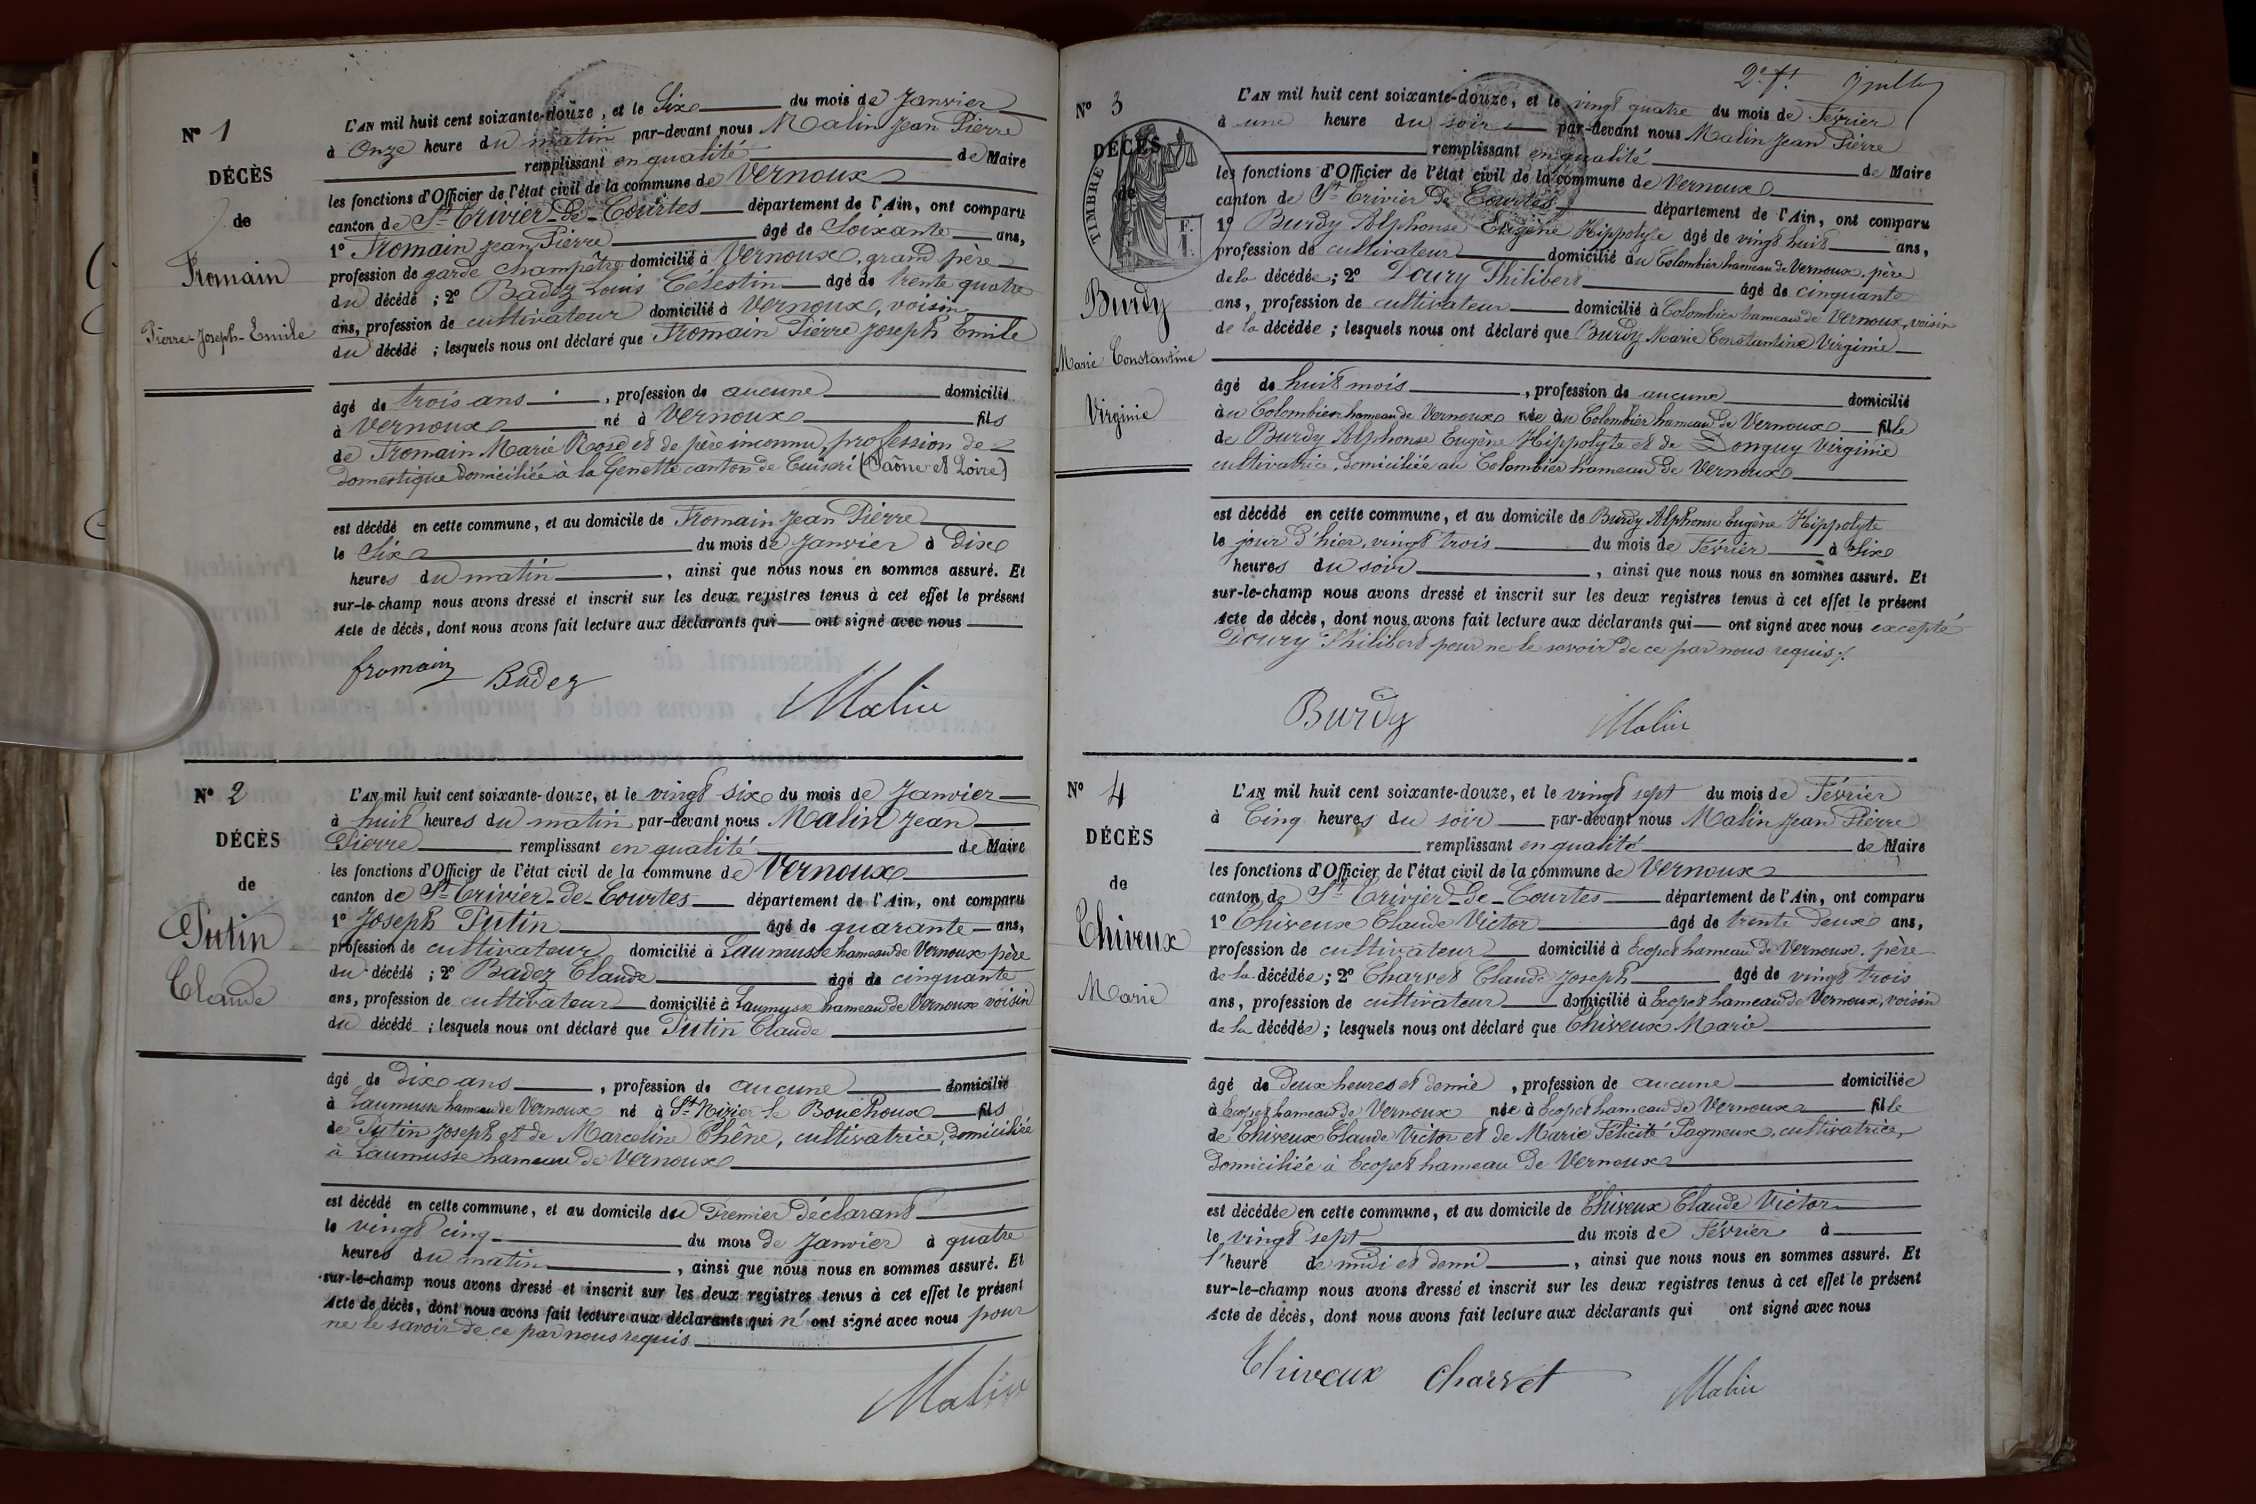 N° 1
DÉCÈS
de
Fromain
Pierre-Joseph-Emile
L'AN mil huit cent soixante-douze, et le Six du mois de Janvier
à Onze heure du matin par-devant nous Malin Jean Pierre
remplissant en qualité de Maire
les fonctions d'Officier de l'état civil de la commune de Vernoux
canton de St Trivier-de-Courtes département de l'Ain, ont comparu
1° Fromain Jean Pierre âgé de Soixante ans,
profession de garde champêtre domicilié à Vernoux, grand père
du décédé ; 2° Badez Louis Célestin âgé de trente quatre
ans, profession de cultivateur domicilié à Vernoux, voisin
du décédé ; lesquels nous ont déclaré que Fromain Pierre Joseph Emile
âgé de trois ans, profession de aucune domicilié
à Vernoux né à Vernoux fils
de Fromain Marie Rose et de père inconnu, profession de
domestique domiciliée à la Genette canton de Cuiseri (Saône et Loire)
est décédé en cette commune, et au domicile de Fromain Jean Pierre
le Six du mois de Janvier à Dix
heures du matin, ainsi que nous nous en sommes assuré. Et
sur-le-champ nous avons dressé et inscrit sur les deux registres tenus à cet effet le présent
Acte de décès, dont nous avons fait lecture aux déclarants qui ont signé avec nous
fromain Badez Malin
N° 2
DÉCÈS
de
Putin
Claude
L'AN mil huit cent soixante-douze, et le vingt six du mois de Janvier
à huit heures du matin par-devant nous Malin Jean
Pierre remplissant en qualité de Maire
les fonctions d'Officier de l'état civil de la commune de Vernoux
canton de St Trivier-de-Courtes département de l'Ain, ont comparu
1° Joseph Putin âgé de quarante ans,
profession de cultivateur domicilié à Laumusse hameau de Vernoux père
du décédé ; 2° Badez Claude âgé de cinquante
ans, profession de cultivateur domicilié à Laumusse hameau de Vernoux voisin
du décédé ; lesquels nous ont déclaré que Putin Claude
âgé de Dix ans, profession de aucune domicilié
à Laumusse hameau de Vernoux né à St Nizier le Bouchoux fils
de Putin Joseph et de Marceline Chêne, cultivatrice, domiciliée
à Laumusse hameau de Vernoux
est décédé en cette commune, et au domicile du Premier déclarant
le vingt cinq du mois de Janvier à quatre
heures du matin, ainsi que nous nous en sommes assuré. Et
sur-le-champ nous avons dressé et inscrit sur les deux registres tenus à cet effet le présent
Acte de décès, dont nous avons fait lecture aux déclarants qui n'ont signé avec nous pour
ne le savoir de ce par nous requis
Malin
2e ft
N° 3
DÉCÈS
de
TIMBRE
Burdy
Marie Constantine
Virginie
L'AN mil huit cent soixante-douze, et le vingt quatre du mois de Février
à une heure du soir par-devant nous Malin Jean Pierre
remplissant en qualité de Maire
les fonctions d'Officier de l'état civil de la commune de Vernoux
canton de St Trivier de Courtes département de l'Ain, ont comparu
1° Burdy Alphonse Eugène Hippolyte âgé de vingt huit ans,
profession de cultivateur domicilié au Colombier hameau de Vernoux, père
de la décédée ; 2° Doury Philibert âgé de cinquante
ans, profession de cultivateur domicilié à Colombier hameau de Vernoux, voisin
de la décédée ; lesquels nous ont déclaré que Burdy Marie Constantine Virginie
âgé de huit mois, profession de aucune domicilié
au Colombier hameau de Vernoux née au Colombier hameau de Vernoux fille
de Burdy Alphonse Eugène Hippolyte et de Donguy Virginie
cultivatrice, domiciliée au Colombier hameau de Vernoux
est décédé en cette commune, et au domicile de Burdy Alphonse Eugène Hippolyte
le jour d'hier, vingt trois du mois de Février à Six
heures du soir, ainsi que nous nous en sommes assuré. Et
sur-le-champ nous avons dressé et inscrit sur les deux registres tenus à cet effet le présent
Acte de décès, dont nous avons fait lecture aux déclarants qui ont signé avec nous excepté
Doury Philibert pour ne le savoir de ce par nous requis.
Burdy Malin
N° 4
DÉCÈS
de
Chiveux
Marie
L'AN mil huit cent soixante-douze, et le vingt sept du mois de Février
à Cinq heures du soir par-devant nous Malin Jean Pierre
remplissant en qualité de Maire
les fonctions d'Officier de l'état civil de la commune de Vernoux
canton de St Trivier-de-Courtes département de l'Ain, ont comparu
1° Chiveux Claude Victor âgé de trente deux ans,
profession de cultivateur domicilié à Ecopet hameau de Vernoux, père
de la décédée ; 2° Charvet Claude Joseph âgé de vingt trois
ans, profession de cultivateur domicilié à Ecopet hameau de Vernoux, voisin
de la décédée ; lesquels nous ont déclaré que Chiveux Marie
âgé de Deux heures et demie, profession de aucune domiciliée
à Ecopet hameau de Vernoux née à Ecopet hameau de Vernoux fille
de Chiveux Claude Victor et de Marie Félicité Pagneux, cultivatrice,
domiciliée à Ecopet hameau de Vernoux
est décédée en cette commune, et au domicile de Chiveux Claude Victor
le vingt sept du mois de Février à
l'heure de midi et demi, ainsi que nous nous en sommes assuré. Et
sur-le-champ nous avons dressé et inscrit sur les deux registres tenus à cet effet le présent
Acte de décès, dont nous avons fait lecture aux déclarants qui ont signé avec nous
Chiveux Charvet Malin